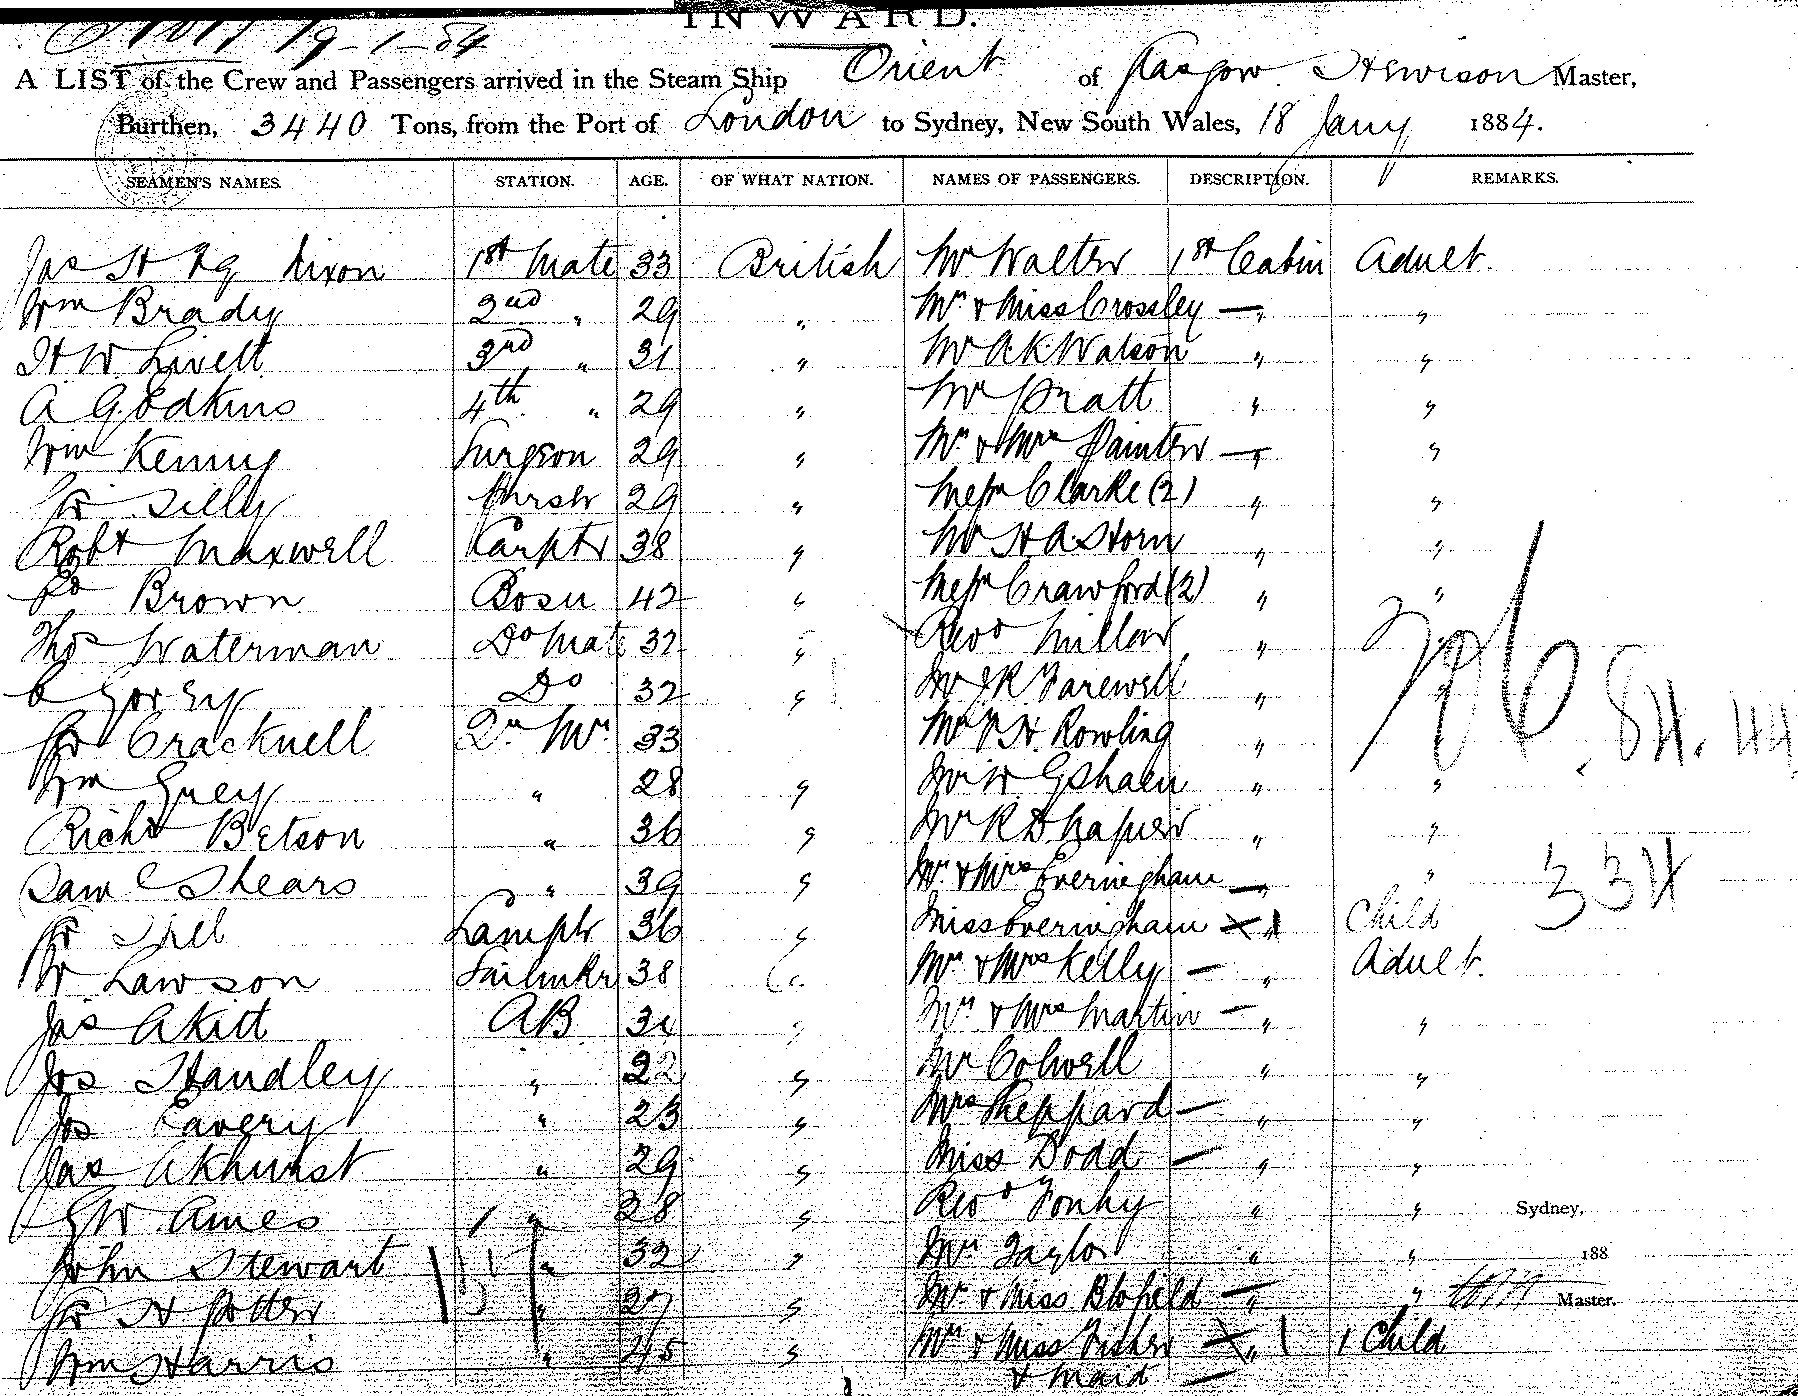 INWARD.
19-1-84
A LIST of the Crew and Passengers arrived in the Steam Ship Orient of Glasgow Hewison Master,
Burthen, 3440 Tons, from the Port of London to Sydney, New South Wales, 18 Jany 1884.
SEAMEN'S NAMES. STATION. AGE. OF WHAT NATION. NAMES OF PASSENGERS. DESCRIPTION. REMARKS.
Jas Dixon 1st Mate 33 British Mr Walter 1st Cabin Adult
Wm Brady 2nd " 29 " Mr & Miss Crossley — " "
H W Livett 3rd " 31 " Mr A.K. Watson " "
A G Edkins 4th " 29 " Mr Pratt " "
Wm Kenny Surgeon 29 " Mr & Mrs Painter — " "
Silly Purser 29 " Messrs Clarke (2) " "
Robt Maxwell Carptr 38 " Mr H.A. Storn " "
Ed Brown Bosn 42 " Messrs Crawford (2) " "
Thos Waterman Do Mate 32 " Revd Millow " "
Do 32 " Mr J R Farewell " "
Cracknell Qr Mr 33 Mr P.H. Rowling " "
Wm Guey " 28 " Mr W " "
Richd Betson " 36 " Mr R D Napier " "
Saml Shears " 39 " Mr & Mrs Everingham — " "
Lamptr 36 " Miss Everingham X 1 " Child
W Lawson Sailmkr 38 " Mr & Mrs Kelly — " Adult
Jas Akitt AB 31 " Mr & Mrs Martin — " "
Jos Handley " 22 " Mr Colwell " "
Jos Eavery " 23 " Mrs Sheppard — " "
Jas Akhurst " 29 " Miss Dodd — " "
G W Ames " 28 " Revd " " Sydney,
John Stewart " 32 " Mr Taylor " " 188
H Potter " 27 " Mr & Miss Blofield — " " Master.
Wm Harris " 45 " Mr & Miss Fisher X " 1 1 Child
& maid —
84.44
334